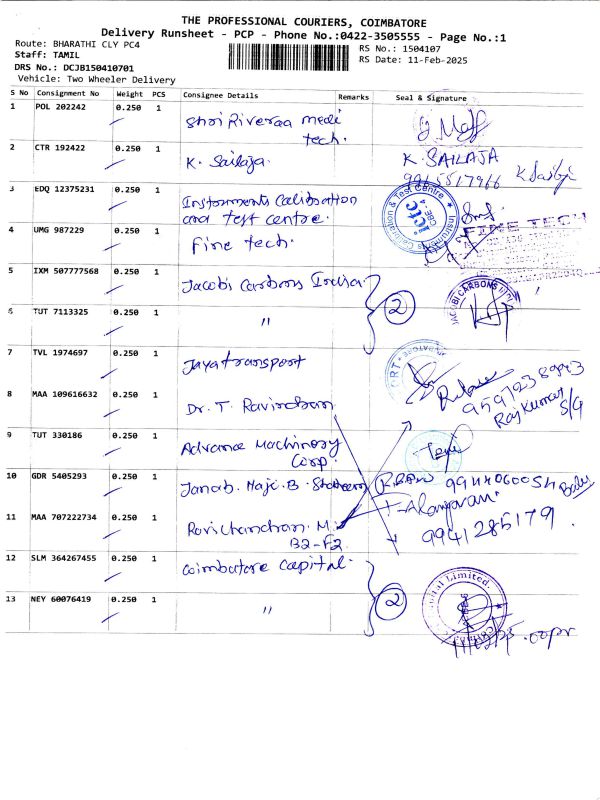 THE PROFESSIONAL COURIERS, COIMBATORE
Delivery Runsheet - PCP - Phone No.:0422-3505555 - Page No.:1
Route: BHARATHI CLY PC4
Staff: TAMIL
DRS No.: DCJB150410701
Vehicle: Two Wheeler Delivery
RS No.: 1504107
RS Date: 11-Feb-2025
S No Consignment No Weight PCS Consignee Details Remarks Seal & Signature
1 POL 202242 0.250 1 Shri Riveraa medi
tech.
2 CTR 192422 0.250 1 K. Sailaja. K. SAILAJA
9965517966
3 EDQ 12375231 0.250 1 Instruments Calibration
and test centre.
Instruments Calibration & Test Centre
ictc
CBE - 4
4 UMG 987229 0.250 1 Fine tech. FINE TECH
5 IXM 507777568 0.250 1 Jacobi Carbons India 2 JACOBI CARBONS
6 TUT 7113325 0.250 1 "
7 TVL 1974697 0.250 1 Jayatransport
8 MAA 109616632 0.250 1 Dr. T. Ravindran
9597238993
Raj Kumar S/G
9 TUT 330186 0.250 1 Advance Machinery
Corp.
10 GDR 5405293 0.250 1 Janab. Haji. B. 9944060054 Babu
11 MAA 707222734 0.250 1 Ravichandran. M.
B2-F2
9941285179
12 SLM 364267455 0.250 1 Coimbatore Capital. 2 Capital Limited.
13 NEY 60076419 0.250 1 "